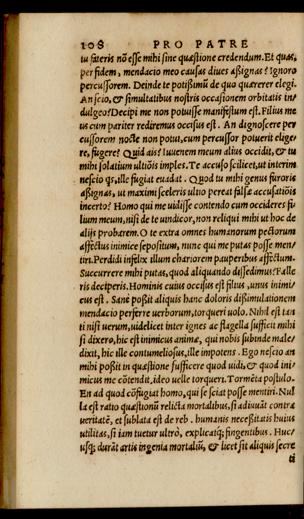 108 PRO PATRE
tu fateris nõ esse mihi sine quæstione credendum. Et quas,
per fidem, mendacio meo causas diues aßignas? Ignoro
percussorem. Deinde te potißimũ de quo quærerer elegi.
An scio, & simultatibus nostris occasionem orbitatis in/
dulgeo? Decipi me non potuisse manifestum est. Filius me
us cum pariter rediremus occisus est. An dignoscere per
cussorem nocte non potui, cum percussor potuerit elige/
re, fugere? Quid ais? Iuuenem meum alius occidit, & tu
mihi solatium ultiõis imples. Te accuso scilicet, ut interim
nescio qs, ille fugiat euadat. Quod tu mihi genus furoris
aßignas, ut maximi sceleris ultio pereat falsæ accusatiõis
incerto? Homo qui me uidisse contendo cum occideres fi/
lium meum, nisi de te uindicor, non reliqui mihi ut hoc de
alijs probarem. O te extra omnes humanorum pectorum
affectus inimice sepositum, nunc qui me putas posse men/
tiri. Perdidi infelix illum chariorem pauperibus affectum.
Succurrere mihi putas, quod aliquando dissedimus? Falle
ris deciperis. Hominis cuius occisus est filius, unus inimi/
cus est. Sanè poßit aliquis hanc doloris dißimulationem
mendacio perferre uerborum, torqueri uolo. Nihil est tan
ti nisi uerum, uidelicet inter ignes ac flagella sufficit mihi
si dixero, hic est inimicus anima, qui nobis subinde male/
dixit, hic ille contumeliosus, ille impotens. Ego nescio an
mihi poßit in quæstione sufficere quod uidi, & quod ini/
micus me cõtendit, ideo uelle torqueri. Tormẽta postulo.
En ad quod cõfugiat homo, qui se sciat posse mentiri. Nul
la est ratio quæstionũ relicta mortalibus, si adiuuãt contra
ueritatẽ, et sublata est de reb. humanis neceßitatis huius
utilitas, si iam tuetur ultrò, explicatq; fingentibus. Huc/
usq; durãt artis ingenia mortaliũ, & licet sit aliquis secre
ti